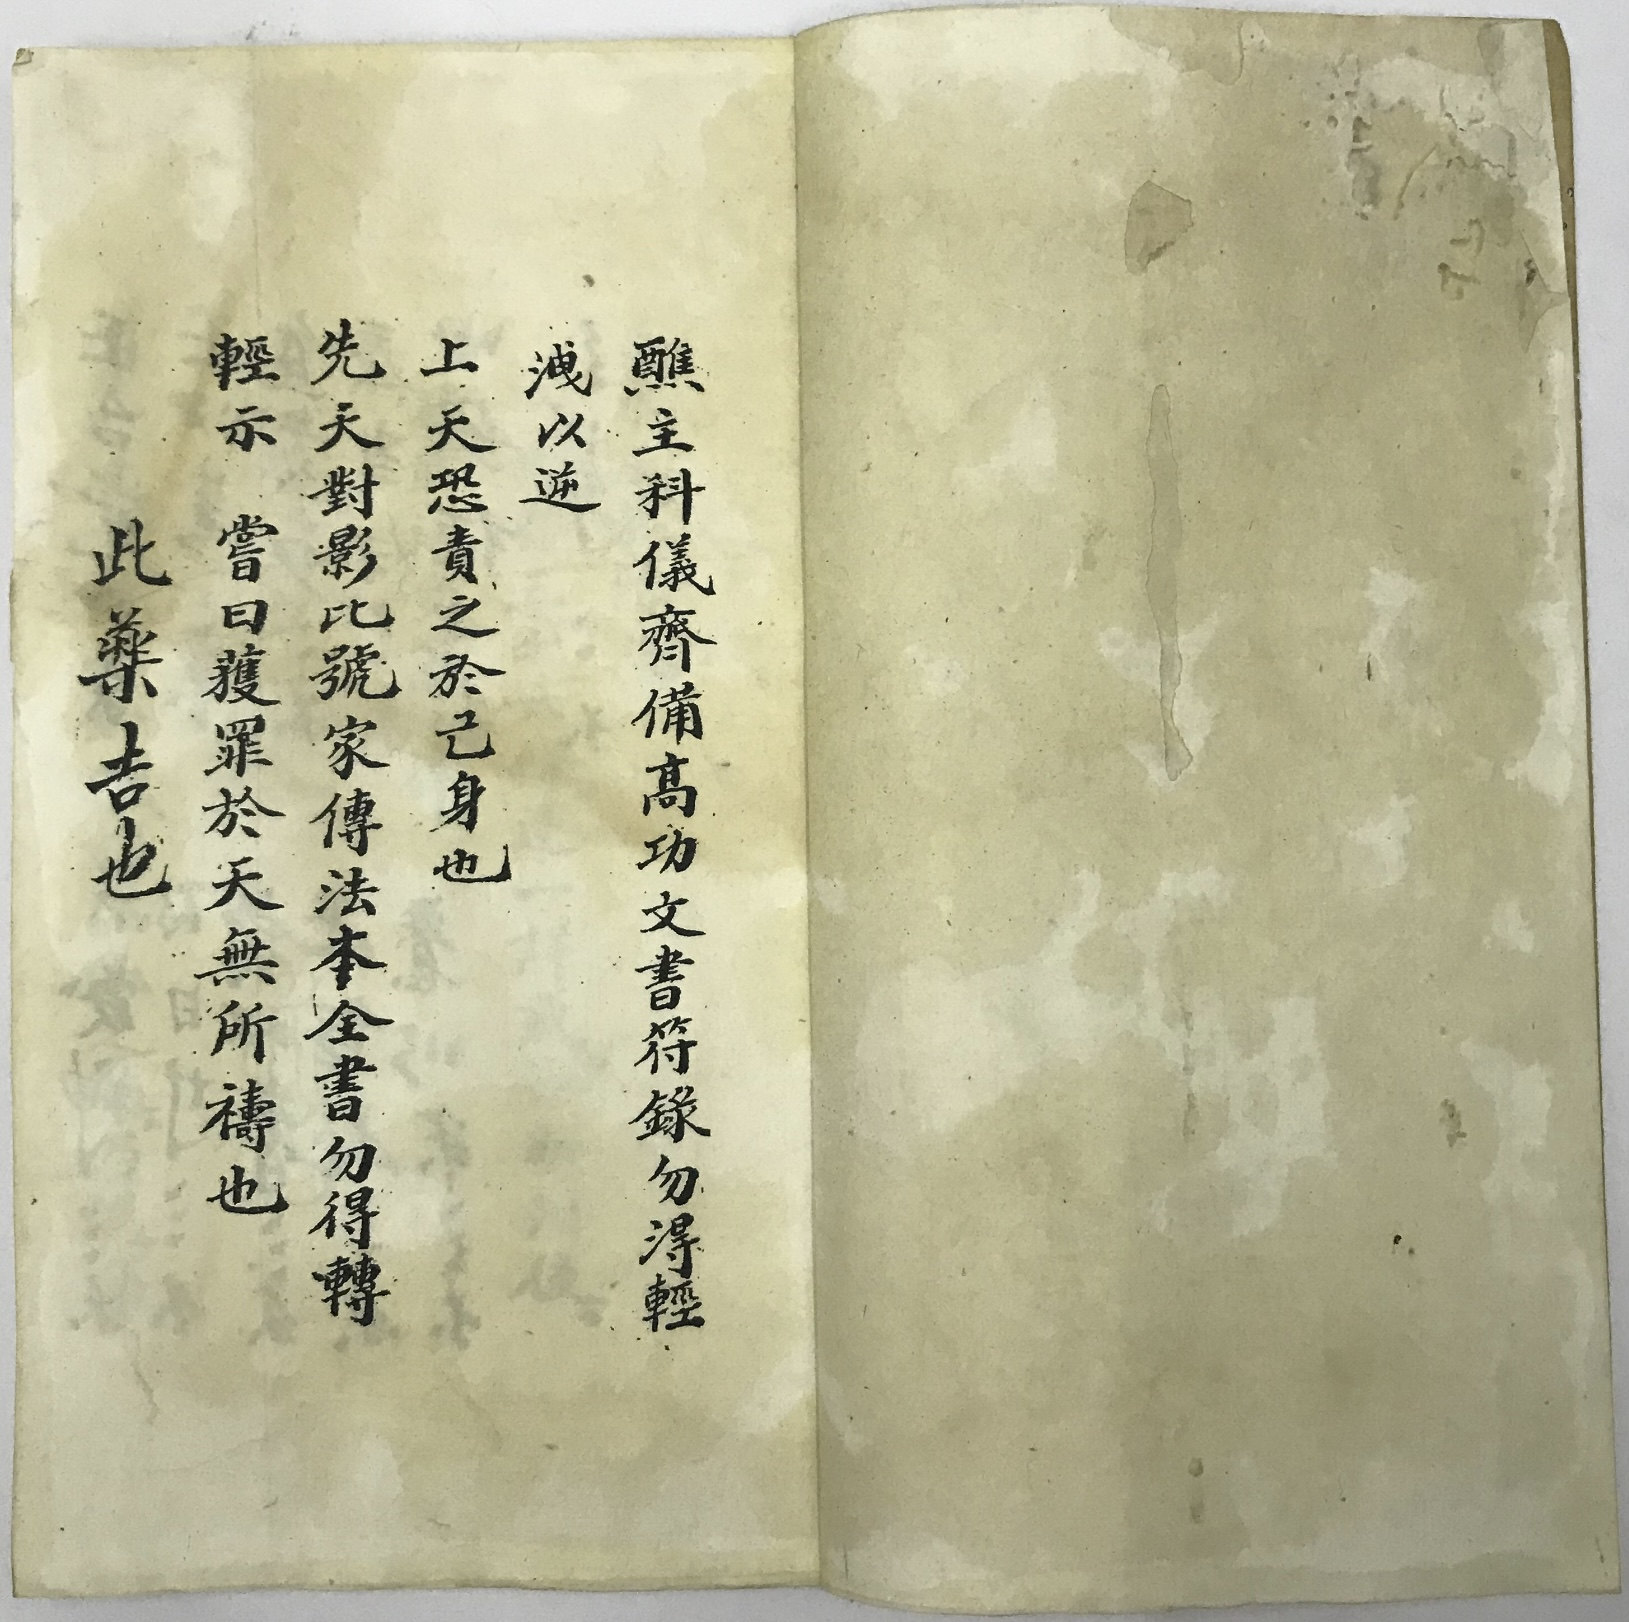 醮主科儀齊備高功文書符錄勿淂輕
洩以逆
上天恐責之於己身也
先天對影比號家傳法本全書勿得轉
輕示　嘗曰獲罪於天無所禱也
此藥吉也